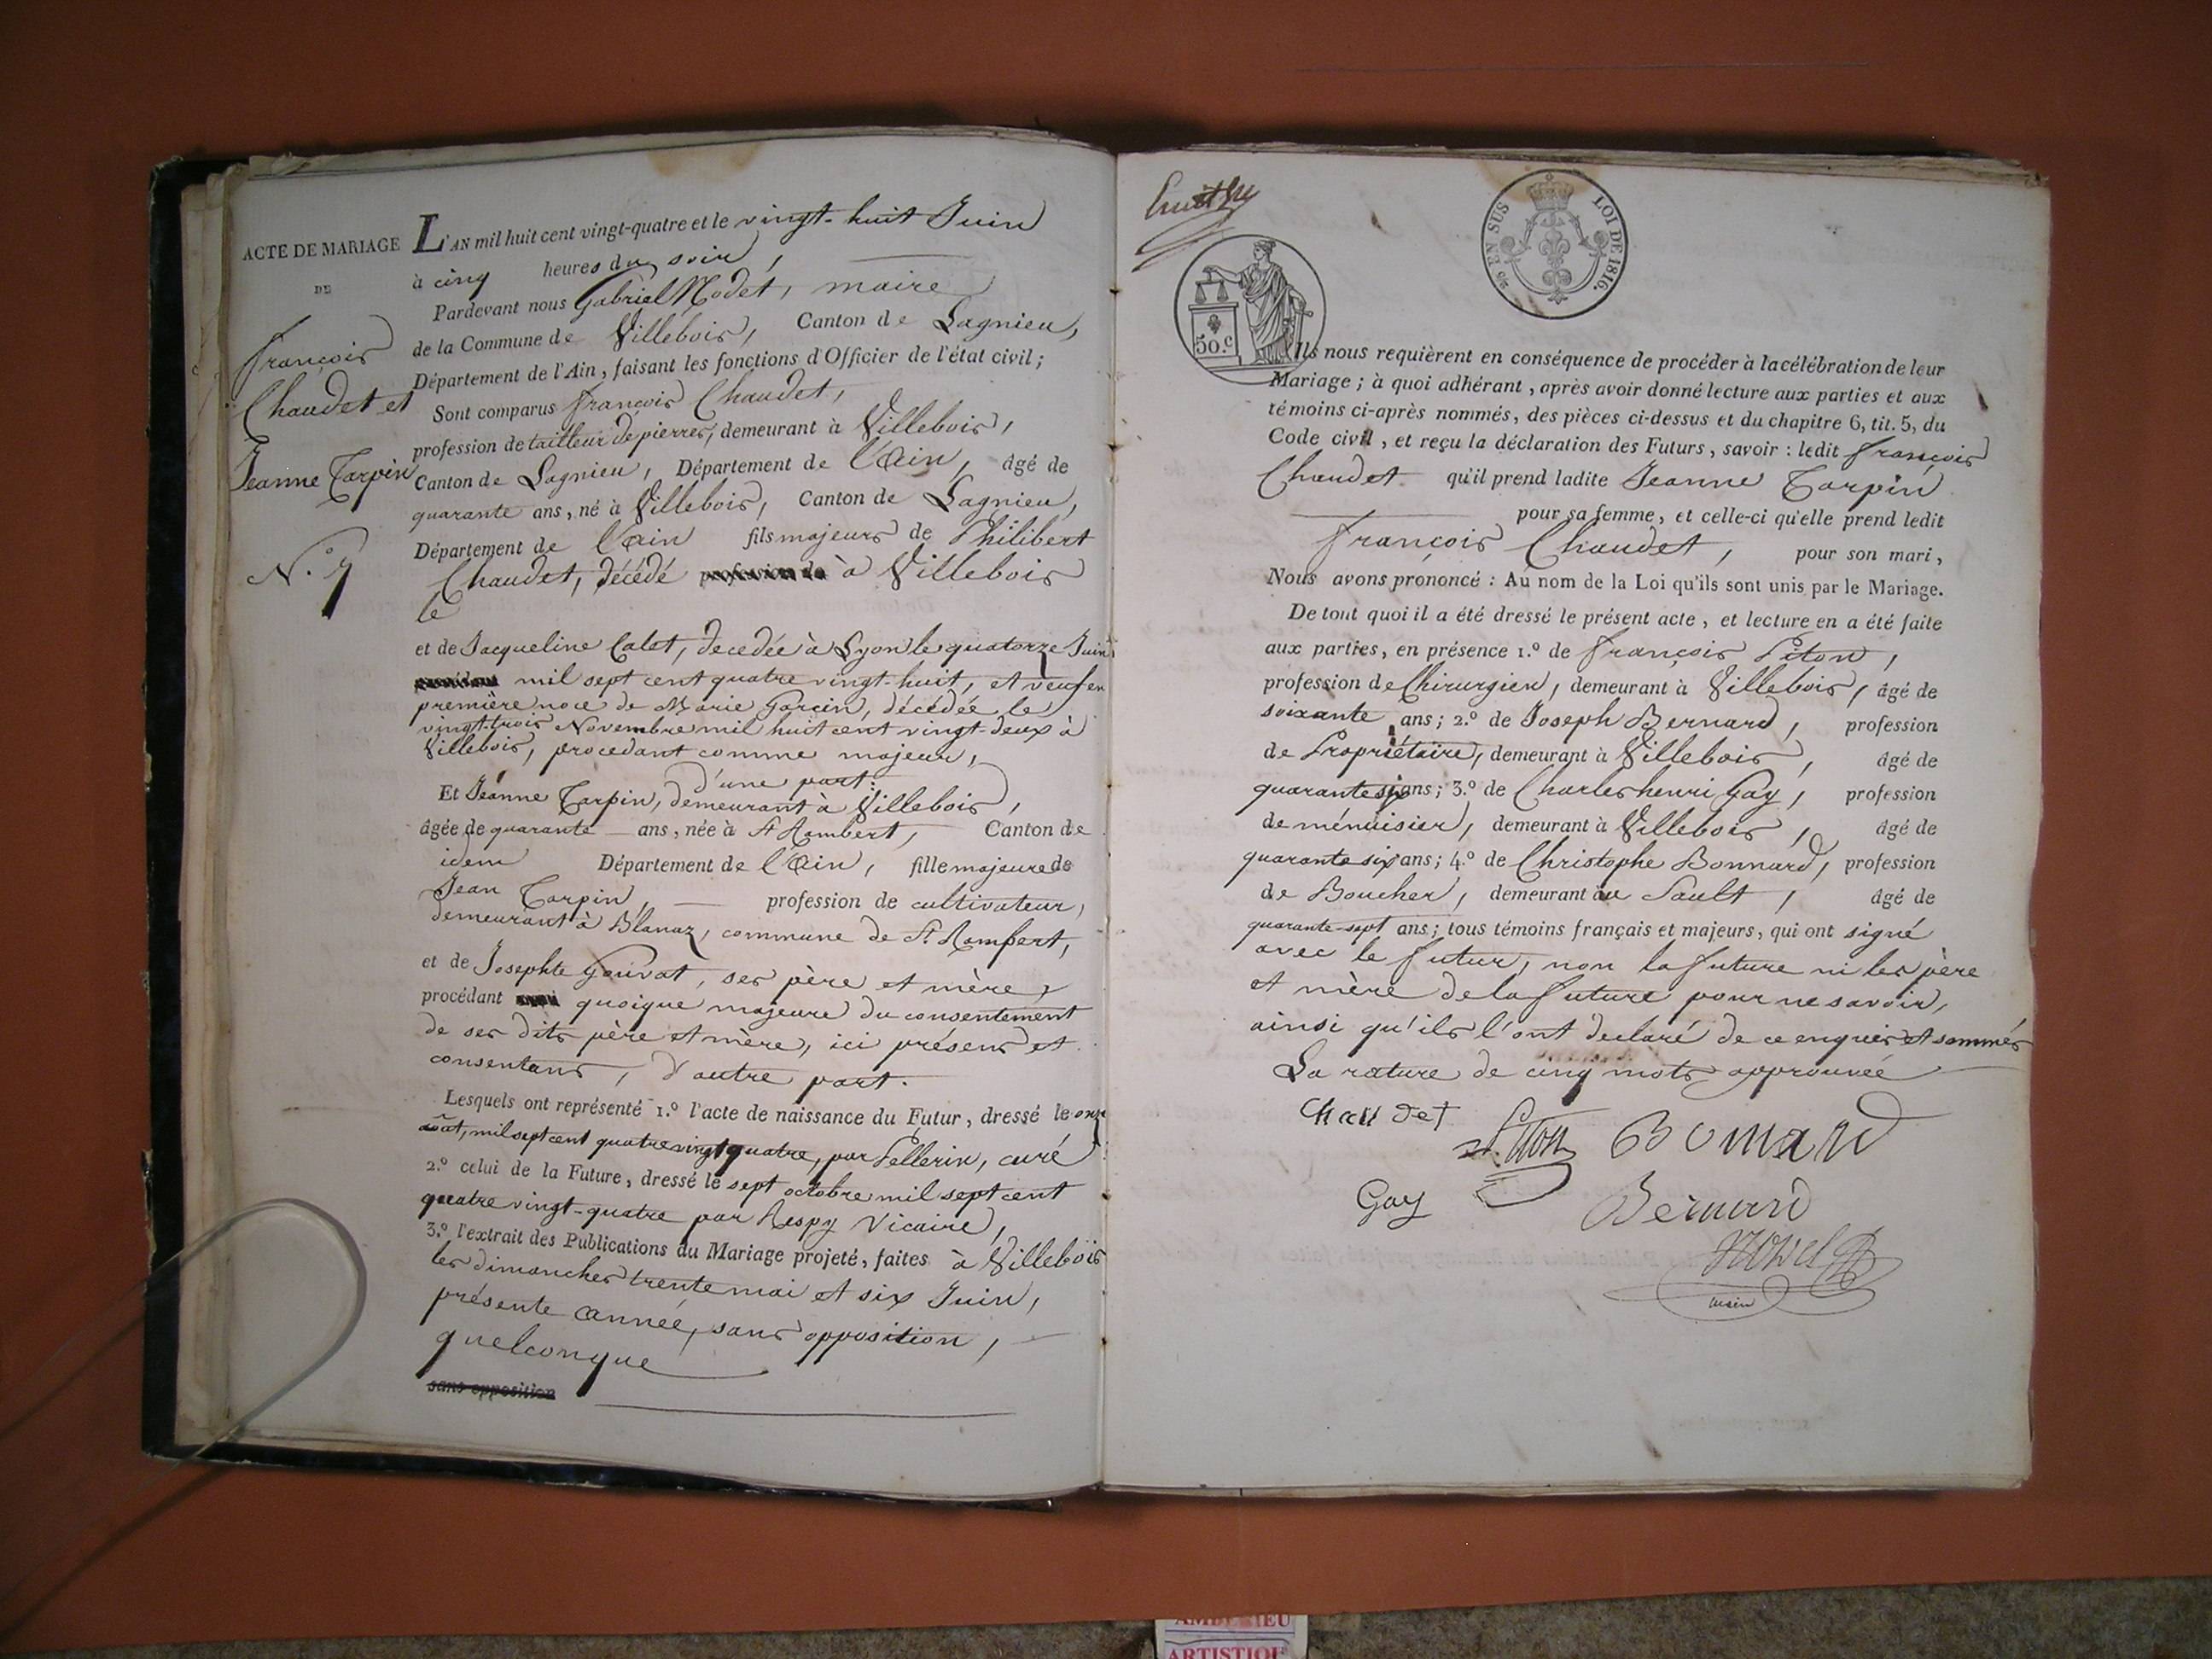 ACTE DE MARIAGE
DE
François
Chaudet et
Jeanne Tarpin
N.º 7
L'AN mil huit cent vingt-quatre et le vingt-huit Juin
à cinq heures du soir,
Pardevant nous Gabriel Modet, maire
de la Commune de Villebois, Canton de Lagnieu,
Département de l'Ain, faisant les fonctions d'Officier de l'état civil;
Sont comparus françois Chaudet,
profession de tailleur de pierres, demeurant à Villebois,
Canton de Lagnieu, Département de l'Ain, âgé de
quarante ans, né à Villebois, Canton de Lagnieu,
Département de l'Ain fils majeur de Philibert
Chaudet, décédé profession de à Villebois
le
et de Jacqueline Calet, decedée à Lyon le quatorze Juin
mil sept cent quatre vingt-huit, et veuf en
première noce de Marie Garcin, décédée le
vingt-trois Novembre mil huit cent vingt-deux à
Villebois, procedant comme majeur,
d'une part:
Et Jeanne Tarpin, demeurant à Villebois,
âgée de quarante ans, née à St Rambert, Canton de
idem Département de l'Ain, fille majeure de
Jean Tarpin, profession de cultivateur,
demeurant à Blanaz, commune de St Rambert,
et de Josephte Gouvat, ses père et mère,
procédant quoique majeure du consentement
de ses dits père et mère, ici présens et
consentans, d'autre part.
Lesquels ont représenté 1.º l'acte de naissance du Futur, dressé le onze
août, mil sept cent quatre vingt quatre, par Pellerin, curé
2.º celui de la Future, dressé le sept octobre mil sept cent
quatre vingt-quatre par Respy Vicaire,
3.º l'extrait des Publications du Mariage projeté, faites à Villebois
les dimanches trente mai et six Juin,
présente année, sans opposition,
quelconque
sans opposition
50.c
EN SUS LOI DE 1816.
Ils nous requièrent en conséquence de procéder à la célébration de leur
Mariage; à quoi adhérant, après avoir donné lecture aux parties et aux
témoins ci-après nommés, des pièces ci-dessus et du chapitre 6, tit. 5, du
Code civil, et reçu la déclaration des Futurs, savoir: ledit françois
Chaudet qu'il prend ladite Jeanne Tarpin
pour sa femme, et celle-ci qu'elle prend ledit
françois Chaudet, pour son mari,
Nous avons prononcé: Au nom de la Loi qu'ils sont unis par le Mariage.
De tout quoi il a été dressé le présent acte, et lecture en a été faite
aux parties, en présence 1.º de françois Piton,
profession de Chirurgien, demeurant à Villebois, âgé de
soixante ans; 2.º de Joseph Bernard, profession
de Propriétaire, demeurant à Villebois, âgé de
quarante six ans; 3.º de Charles henri Gay, profession
de ménuisier, demeurant à Villebois, âgé de
quarante six ans; 4.º de Christophe Bonnard, profession
de Boucher, demeurant au Sault, âgé de
quarante-sept ans; tous témoins français et majeurs, qui ont signé
avec le futur, non la future ni les père
et mère de la future pour ne savoir,
ainsi qu'ils l'ont declaré de ce enquis et sommés
La rature de cinq mots approuvée
Chaudet
Piton Bonnard
Gay Bernard
Modet
maire
ARTISTIQUE